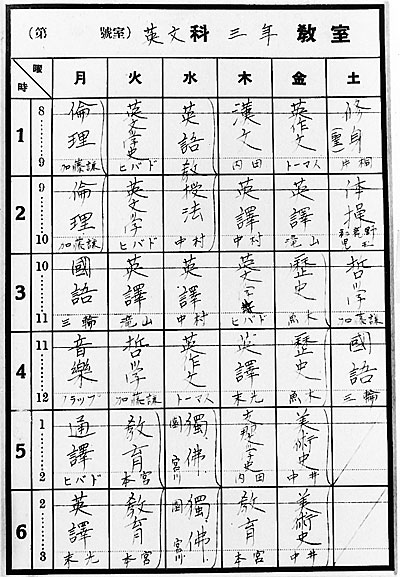 (第 號室) 英文科 三年 教室
曜 時 月 火 水 木 金 土
1 8 9 倫理 加藤 英文学史 ヒバド 英語教授法 漢文 内田 英作文 トーマス 修身 片桐
2 9 10 倫理 加藤 英文学 ヒバド 中村 英譯 中村 英譯 滝山 体操
3 10 11 國語 三輪 英譯 滝山 英譯 中村 英文 ヒバド 歷史 高木 哲学 加藤
4 11 12 音樂 クラップ 哲学 加藤 英作文 トーマス 英譯 末光 歷史 高木 國語 三輪
5 1 2 通譯 ヒバド 教育 本宮 獨 佛 宮川 支那文学史 内田 美術史 中井
6 2 3 英譯 末光 教育 本宮 獨 佛 宮川 教育 本宮 美術史 中井